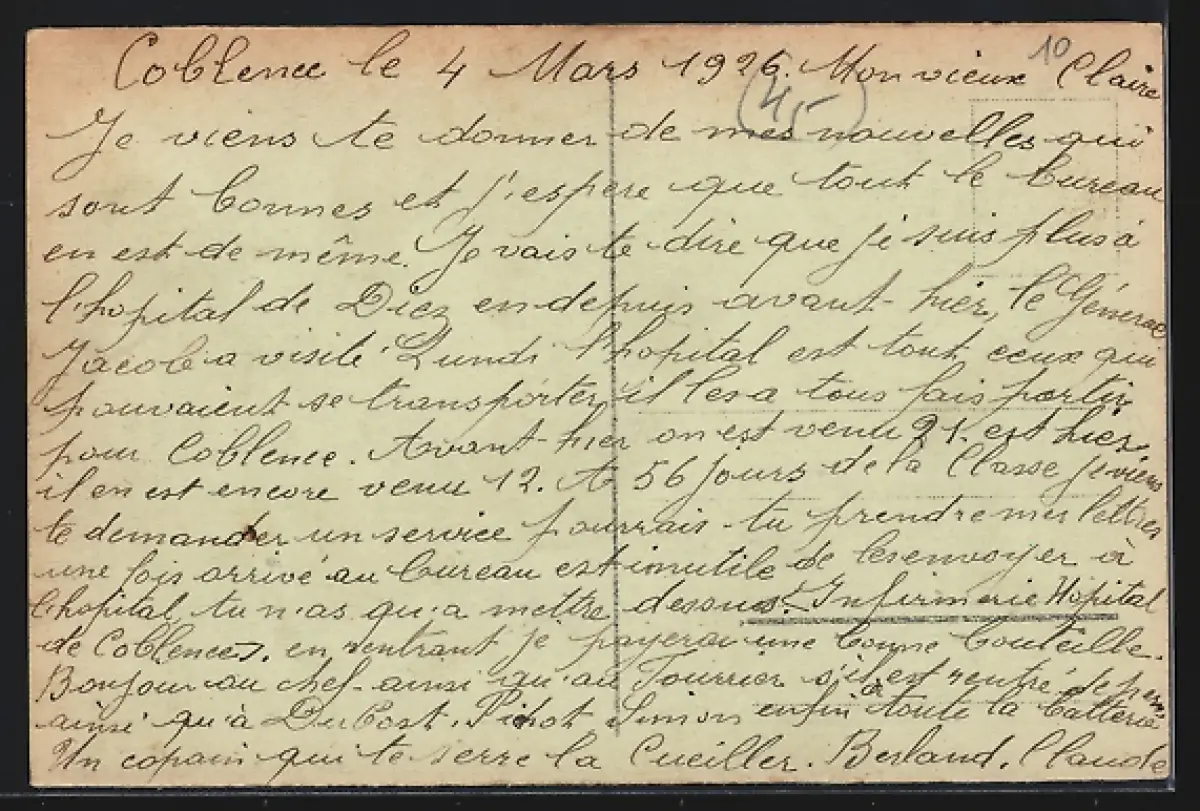 Coblence le 4 Mars 1926. Mon vieux Claire
10
45
Je viens te donner de mes nouvelles qui
sont bonnes et j'espère que tout le bureau
en est de même. Je vais te dire que je suis plus à
l'hopital de Diez en depuis avant-hier, le Général
Jacob a visité Lundi l'hopital est tout ceux qui
pouvaient se transporter, il les a tous fais partir
pour Coblence. Avant-hier on est venu 21. est hier
il en est encore venu 12. A 56 jours de la Classe je viens
te demander un service pourrais-tu prendre mes lettres
une fois arrivé au bureau est inutile de les envoyer à
l'hopital, tu n'as qu'a mettre dessus: Infirmerie Hopital
de Coblence. en rentrant je payerai une bonne bouteille.
Bonjour au chef ainsi qu'au Fourrier s'il est rentré de perm.
ainsi qu'à Dubost. Pichot Simon enfin à toute la batterie
Un copain qui te serre la Cueiller. Berland. Claude